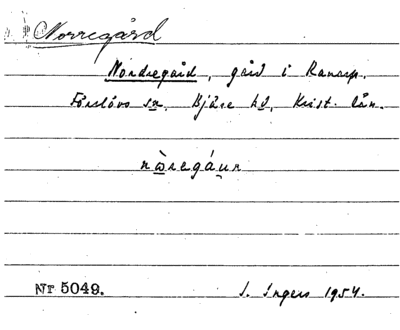 Norregård
Nordregård, gård i Ranarp.
Förslövs sn. Bjäre hd, Krist. län.
nὼregáu̯n
Nr 5049. I. Ingers 1954.